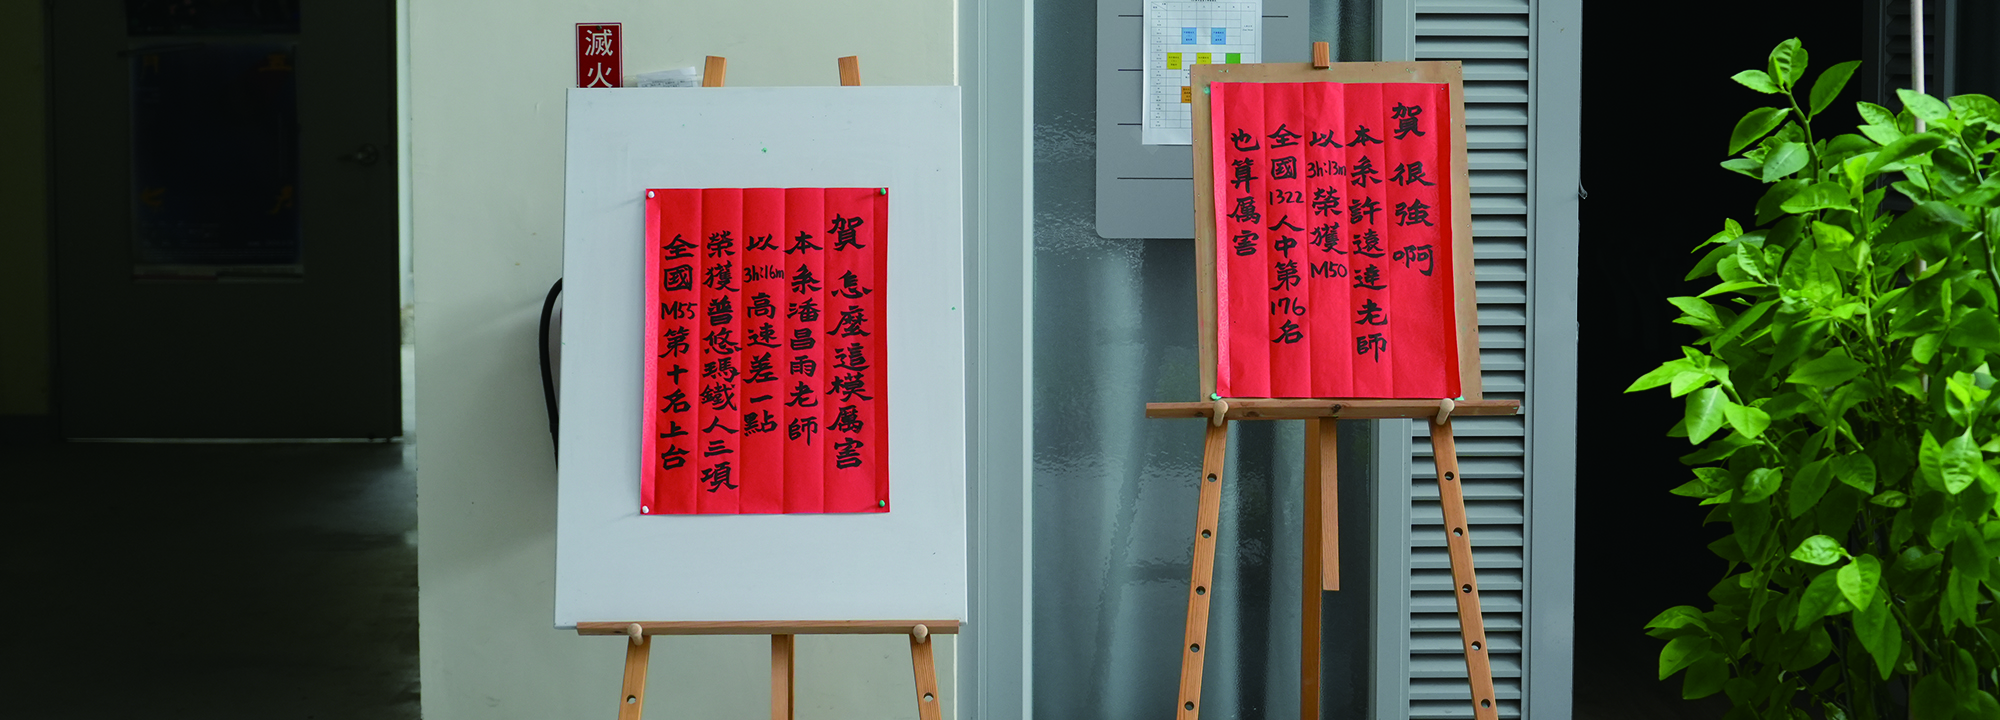 滅火
賀 怎麼這模厲害
本系潘昌雨老師
以3h:16m高速差一點
榮獲普悠瑪鐵人三項
全國M55第十名上台
賀 很強啊
本系許遠達老師
以3h:13m榮獲M50
全國1322人中第176名
也算厲害